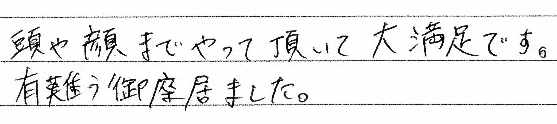 頭や顔までやって頂いて大満足です。
有難う御座居ました。